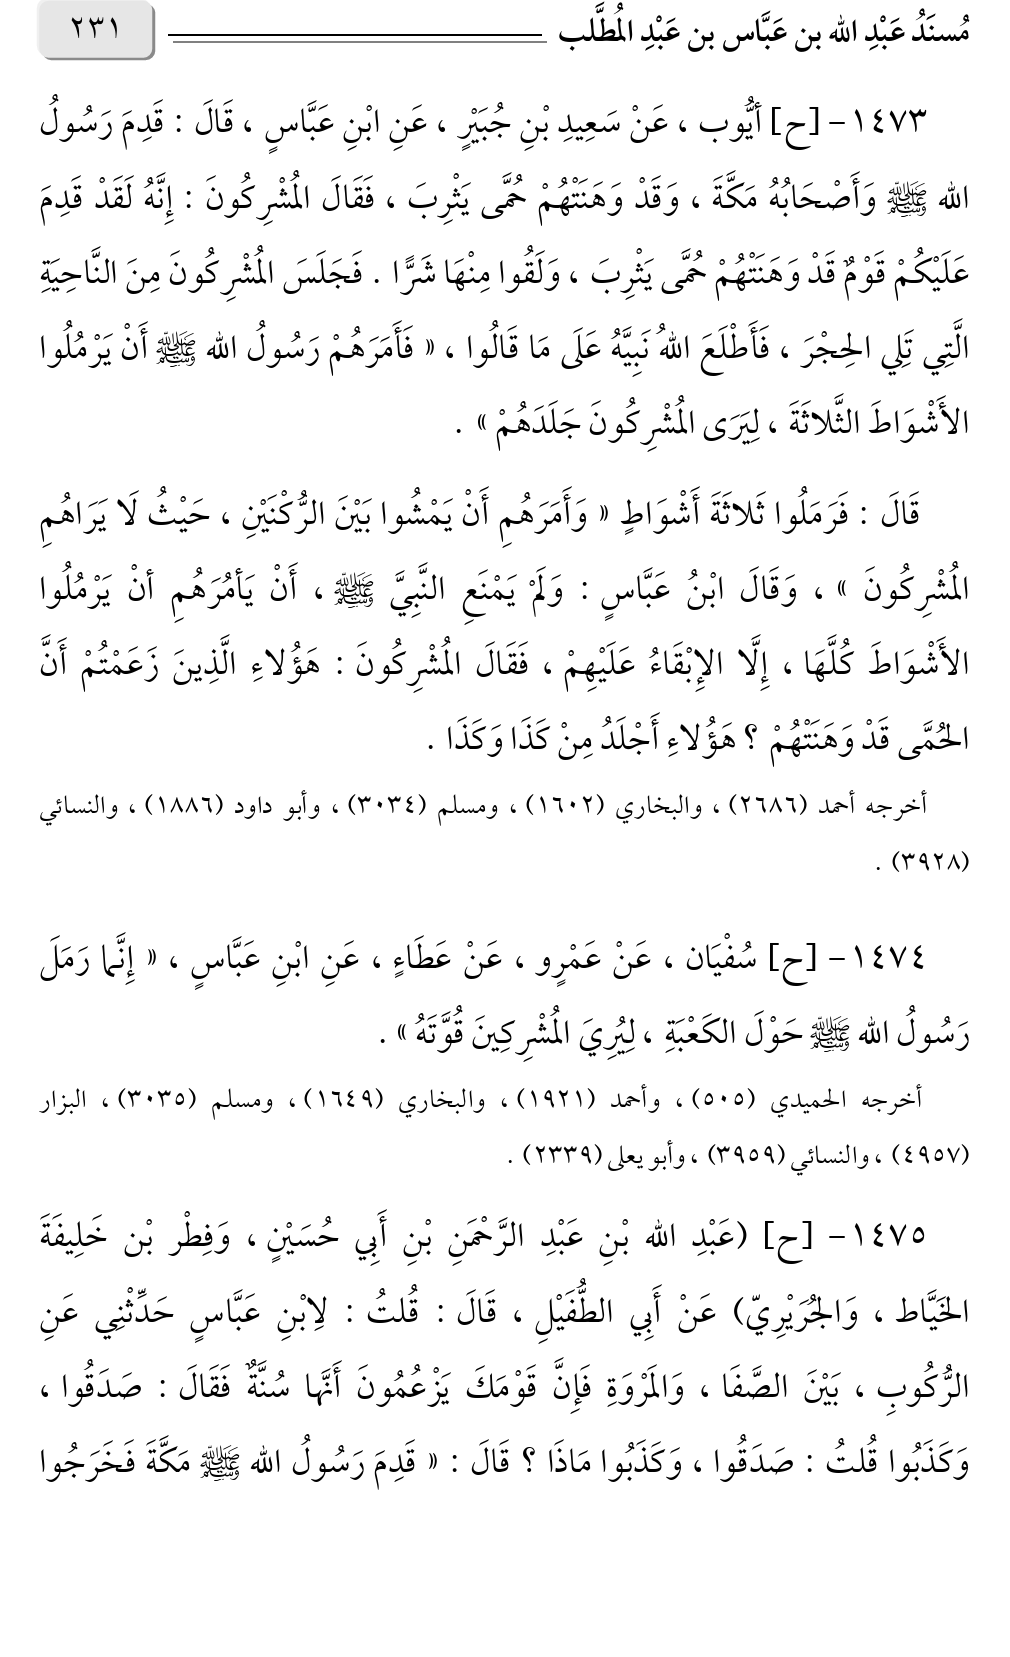 مُسنَدُ عَبْدِ الله بن عَبَّاس بن عَبْدِ المُطَّلب ٢٣١
١٤٧٣- [ح] أيُّوب ، عَنْ سَعِيدِ بْنِ جُبَيْرٍ ، عَنِ ابْنِ عَبَّاسٍ ، قَالَ : قَدِمَ رَسُولُ
الله ﷺ وَأَصْحَابُهُ مَكَّةَ ، وَقَدْ وَهَنَتْهُمْ حُمَّى يَثْرِبَ ، فَقَالَ المُشْرِكُونَ : إِنَّهُ لَقَدْ قَدِمَ
عَلَيْكُمْ قَوْمٌ قَدْ وَهَنَتْهُمْ حُمَّى يَثْرِبَ ، وَلَقُوا مِنْهَا شَرًّا . فَجَلَسَ المُشْرِكُونَ مِنَ النَّاحِيَةِ
الَّتِي تَلِي الحِجْرَ ، فَأَطْلَعَ اللهُ نَبِيَّهُ عَلَى مَا قَالُوا ، « فَأَمَرَهُمْ رَسُولُ الله ﷺ أَنْ يَرْمُلُوا
الأَشْوَاطَ الثَّلاثَةَ ، لِيَرَى المُشْرِكُونَ جَلَدَهُمْ » .
قَالَ : فَرَمَلُوا ثَلاثَةَ أَشْوَاطٍ « وَأَمَرَهُمِ أَنْ يَمْشُوا بَيْنَ الرُّكْنَيْنِ ، حَيْثُ لَا يَرَاهُمِ
المُشْرِكُونَ » ، وَقَالَ ابْنُ عَبَّاسٍ : وَلَمْ يَمْنَعِ النَّبِيَّ ﷺ ، أَنْ يَأمُرَهُمِ أنْ يَرْمُلُوا
الأَشْوَاطَ كُلَّهَا ، إِلَّا الإِبْقَاءُ عَلَيْهِمْ ، فَقَالَ المُشْرِكُونَ : هَؤُلاءِ الَّذِينَ زَعَمْتُمْ أَنَّ
الحُمَّى قَدْ وَهَنَتْهُمْ ؟ هَؤُلاءِ أَجْلَدُ مِنْ كَذَا وَكَذَا .
أخرجه أحمد (٢٦٨٦) ، والبخاري (١٦٠٢) ، ومسلم (٣٠٣٤) ، وأبو داود (١٨٨٦) ، والنسائي
(٣٩٢٨) .
١٤٧٤- [ح] سُفْيَان ، عَنْ عَمْرٍو ، عَنْ عَطَاءٍ ، عَنِ ابْنِ عَبَّاسٍ ، « إِنَّمَا رَمَلَ
رَسُولُ الله ﷺ حَوْلَ الكَعْبَةِ ، لِيُرِيَ المُشْرِكِينَ قُوَّتَهُ » .
أخرجه الحميدي (٥٠٥) ، وأحمد (١٩٢١) ، والبخاري (١٦٤٩) ، ومسلم (٣٠٣٥) ، البزار
(٤٩٥٧) ، والنسائي (٣٩٥٩) ، وأبو يعلى (٢٣٣٩) .
١٤٧٥- [ح] (عَبْدِ الله بْنِ عَبْدِ الرَّحْمَنِ بْنِ أَبِي حُسَيْنٍ ، وَفِطْر بْن خَلِيفَةَ
الخَيَّاط ، وَالجُرَيْرِيّ) عَنْ أَبِي الطُّفَيْلِ ، قَالَ : قُلتُ : لِابْنِ عَبَّاسٍ حَدِّثْنِي عَنِ
الرُّكُوبِ ، بَيْنَ الصَّفَا ، وَالمَرْوَةِ فَإِنَّ قَوْمَكَ يَزْعُمُونَ أَنَّهَا سُنَّةٌ فَقَالَ : صَدَقُوا ،
وَكَذَبُوا قُلتُ : صَدَقُوا ، وَكَذَبُوا مَاذَا ؟ قَالَ : « قَدِمَ رَسُولُ الله ﷺ مَكَّةَ فَخَرَجُوا